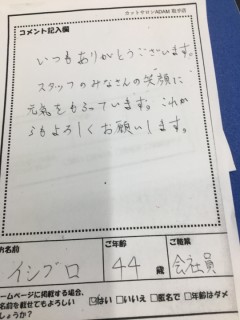 カットサロンADAM
コメント記入欄
いつもありがとうございます。
スタッフのみなさんの笑顔に
元気をもらっています。これか
らもよろしくお願いします。
お名前
ご年齢
ご職業
イシグロ
44歳
会社員
ホームページに掲載する場合、
お名前を載せてもよろしい
でしょうか?
☑はい □いいえ □匿名で □年齢はダメ